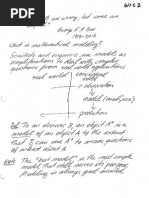 are wrong, but some are
George E.P. Box
1919-2013
What is mathematical modelling?
Scientists and engineers use models as
simplifications to deal with complex
questions from real world applications
real world
conceptual world
observation
model (analysis)
prediction
Def: To an observer B, an object A* is a
model of an object A to the extent
that B can use A* to answer questions
of interest about A.
Note: The "best model" is the most simple
model that still serves its purpose
Modelling is always goal oriented.